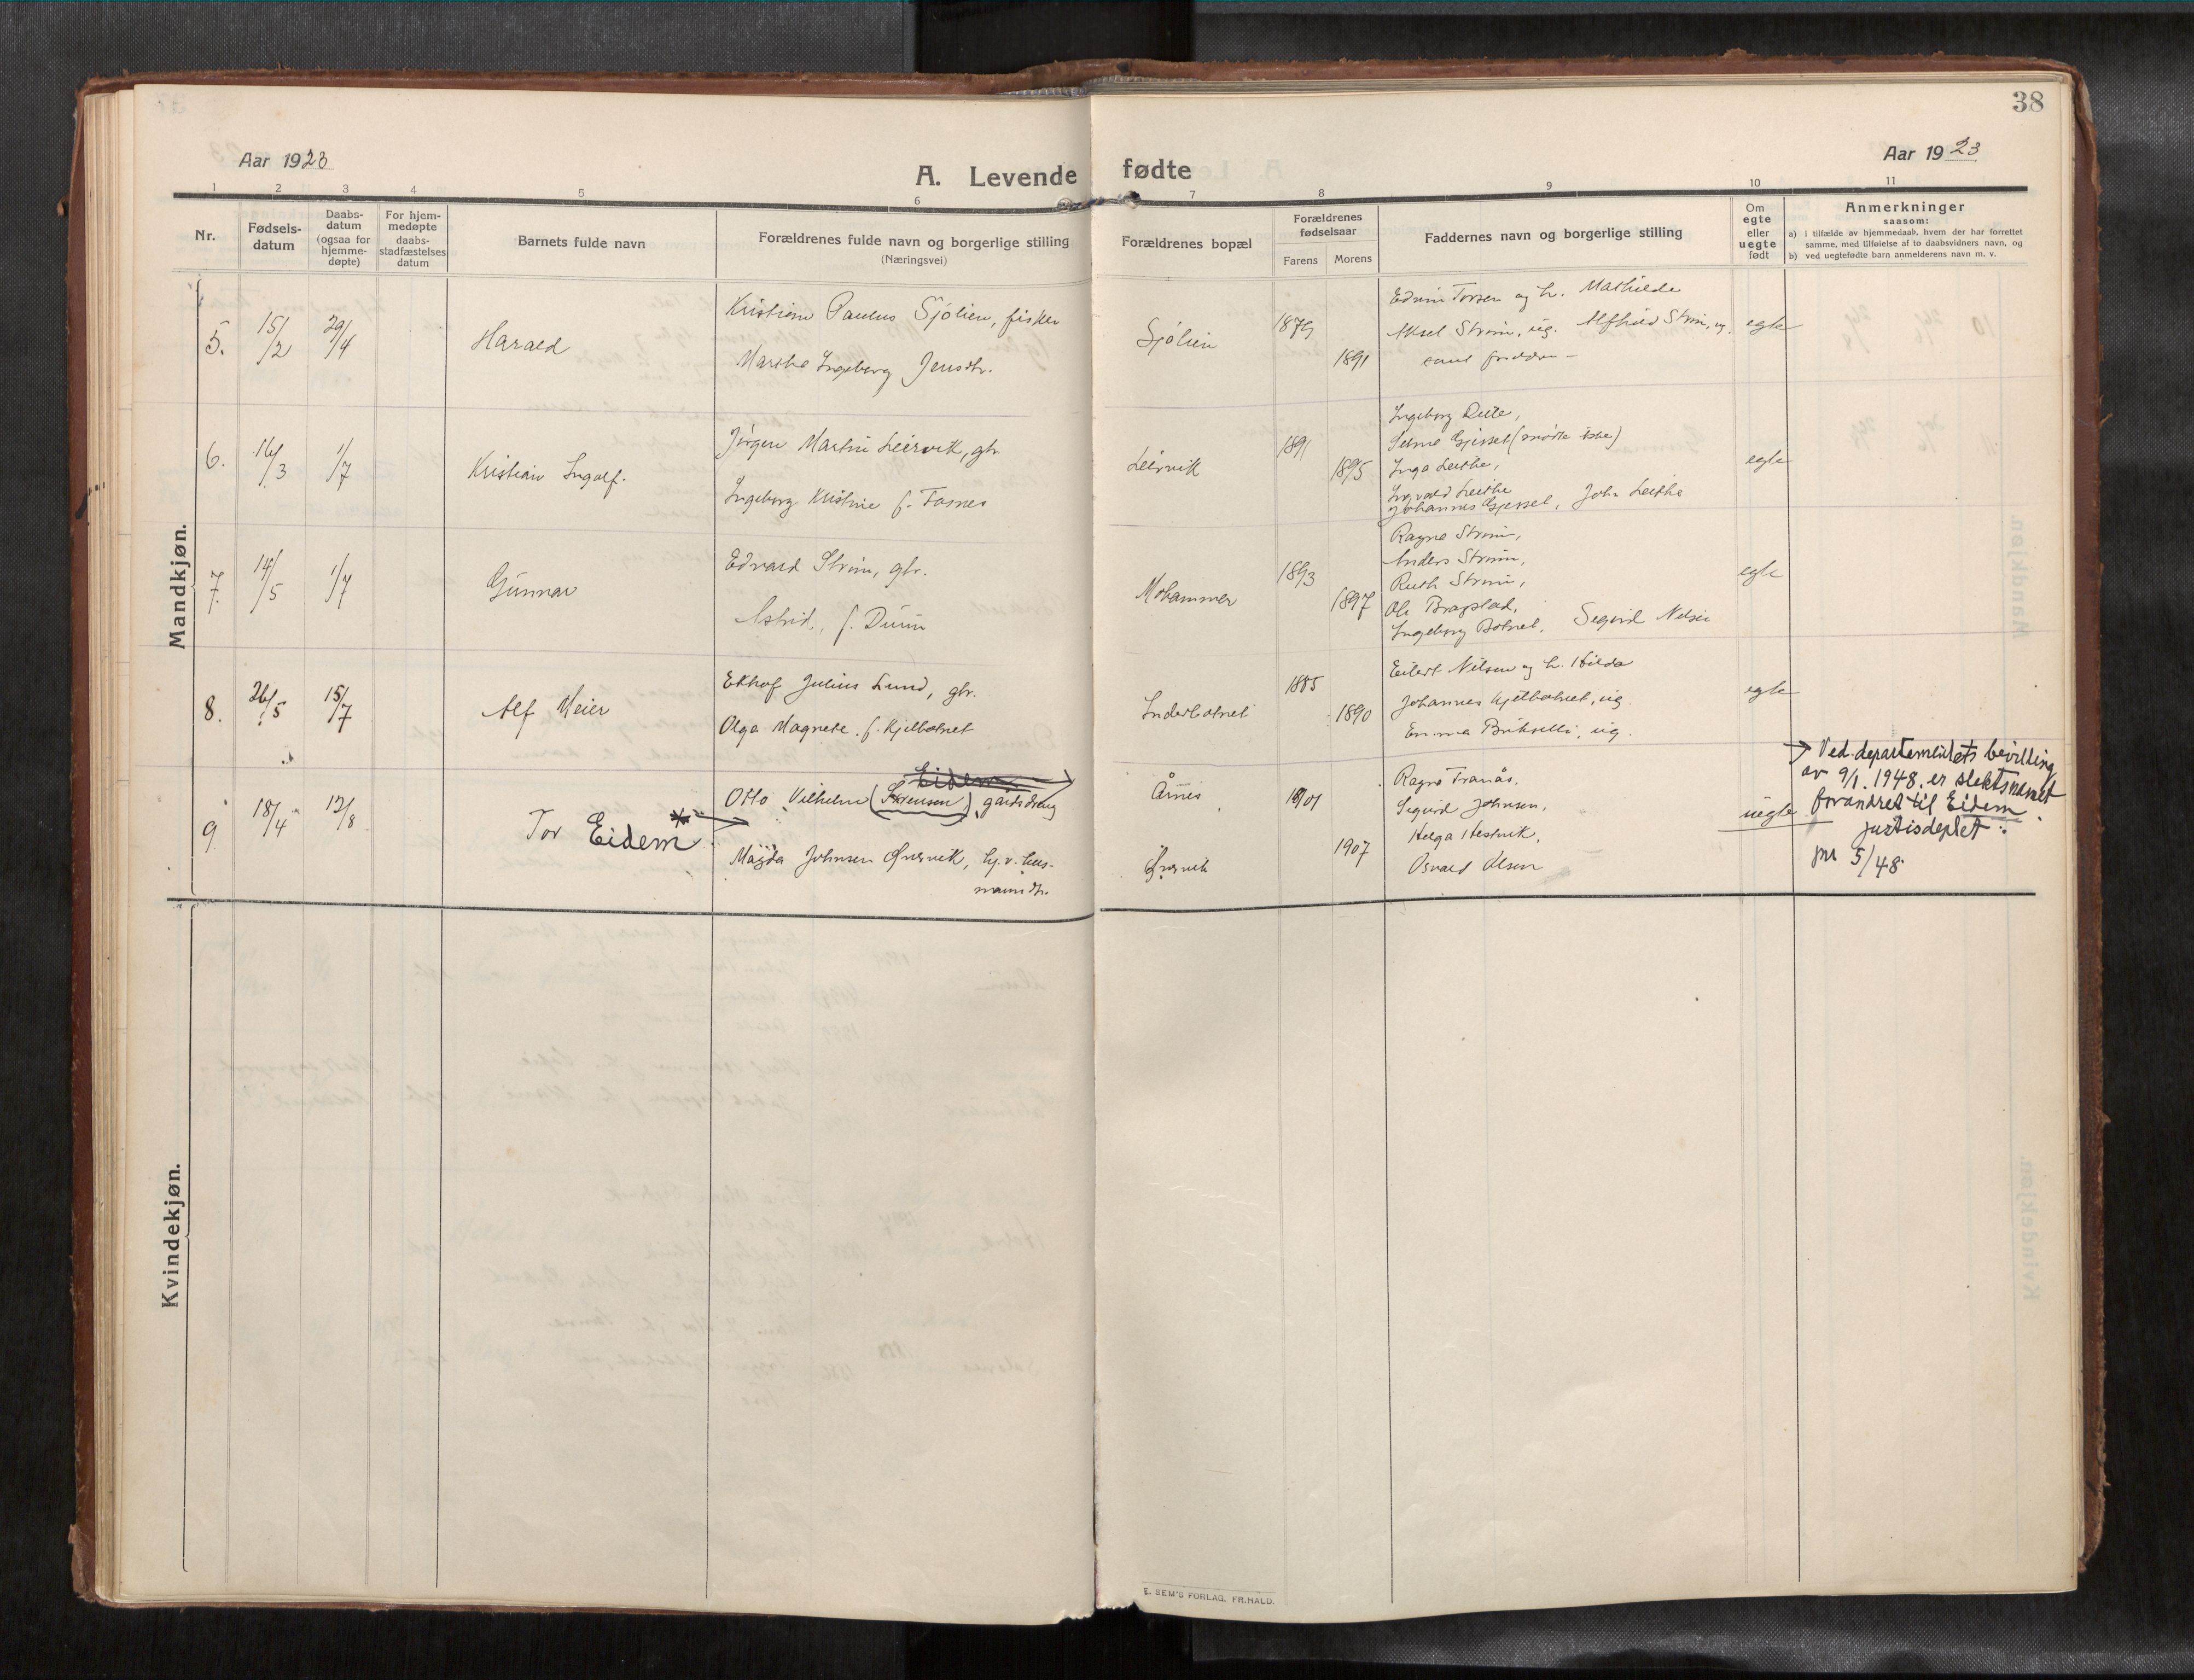 38
Aar 1923
A. Levende fødte
Aar 1923
1 2 3 4 5 6 7 8 9 10 11
Nr.
Fødsels-
datum
Daabs-
datum
(ogsaa for
hjemme-
døpte)
For hjem-
medøpte
daabs-
stadfæstelses
datum
Barnets fulde navn
Forældrenes fulde navn og borgerlige stilling
(Næringsvei)
Forældrenes bopæl
Forældrenes
fødselsaar
Farens Morens
Faddernes navn og borgerlige stilling
Om
egte
eller
uegte
født
Anmerkninger
saasom:
a) i tilfælde av hjemmedaab, hvem der har forrettet
samme, med tilføielse af to daabsvidners navn, og
b) ved uegtefødte barn anmelderens navn m. v.
Mandkjøn.
5. 15/2 29/4 Harald
Kristian Paulus Sjølien, fisker
Marthe Ingeborg Jensdtr.
Sjølien 1879 1891
Edvin Torsen og h. Mathilde
Aksel Strøm, ug. Alfhild Strøm, ug.
samt foreldrene
egte
6. 16/3 1/7 Kristian Ingolf.
Jørgen Martin Leirvik, gbr.
Ingeborg Kristine f. Fosnes
Leirvik 1891 1895
Ingeborg
Selma Gjessel (møtte ikke)
Inga Leithe,
Ingvald Leithe
Johannes Gjessel, John Leithe
egte
7. 14/5 1/7 Gunnar
Edvard Strøm, gbr.
Astrid, f. Duun
Mohammer 1893 1897
Ragna Strøm,
Anders Strøm,
Ruth Strøm,
Ole Bragstad,
Ingeborg Botnet, Sigurd Nilsen
egte
8. 26/5 15/7 Alf Meier
Ekhof Julius Lund, gbr.
Olga Magnete f. Kjelbotnet
Inderbotnet 1885 1890
Eilert Nilsen og h. Hilda
Johannes Kjelbotnet, ug.
Emma ug.
egte
9 18/4 12/8 Tor Eidem *
Eidem
Otto Vilhelm (Sørensen), gaardsdreng
Magda Johnsen Øresvik, hj. v. hus-
manndtr.
Årnes
Øresvik
1901 1907
Ragna Tranås,
Sigurd Johnsen,
Helga Hestvik,
Osvald Olsen
uegte
Ved departementets bevilling
av 9/1. 1948. er slektsnavnet
forandret til Eidem
justisdeptet.
jnr 5/48
Kvindekjøn.
E. SEM'S FORLAG, FR.HALD.